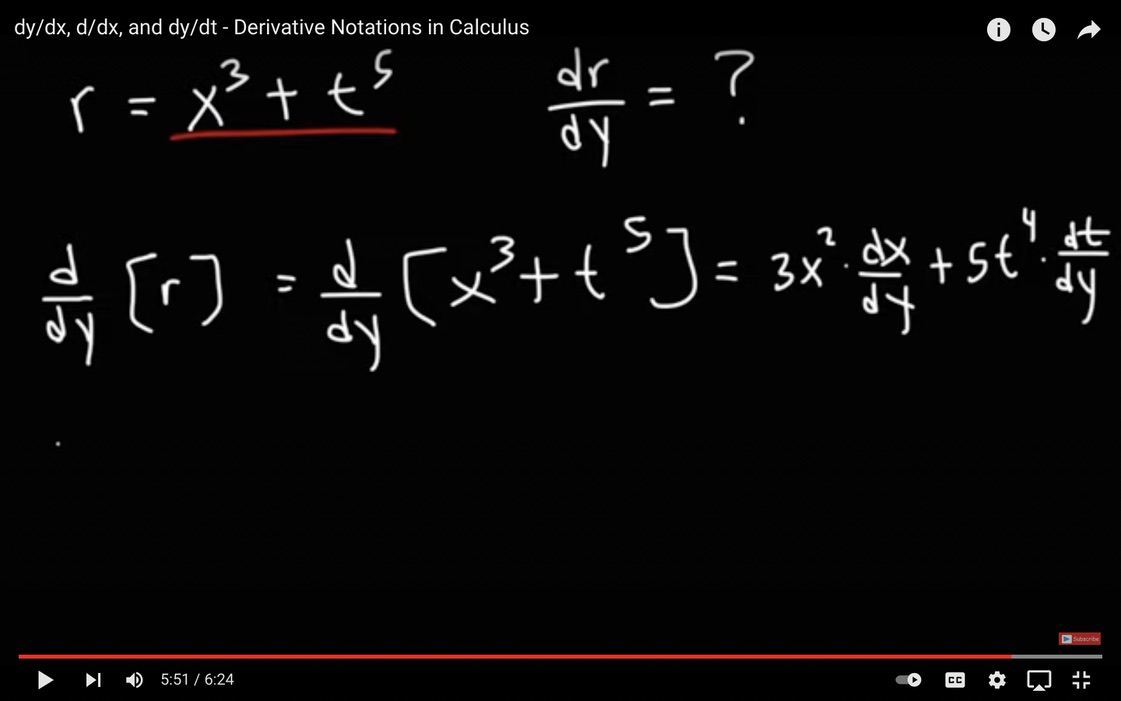 dy/dx, d/dx, and dy/dt - Derivative Notations in Calculus
r = x³ + t⁵    dr/dy = ?
d/dy [r] = d/dy [x³ + t⁵] = 3x² · dx/dy + 5t⁴ · dt/dy
Subscribe
5:51 / 6:24
CC